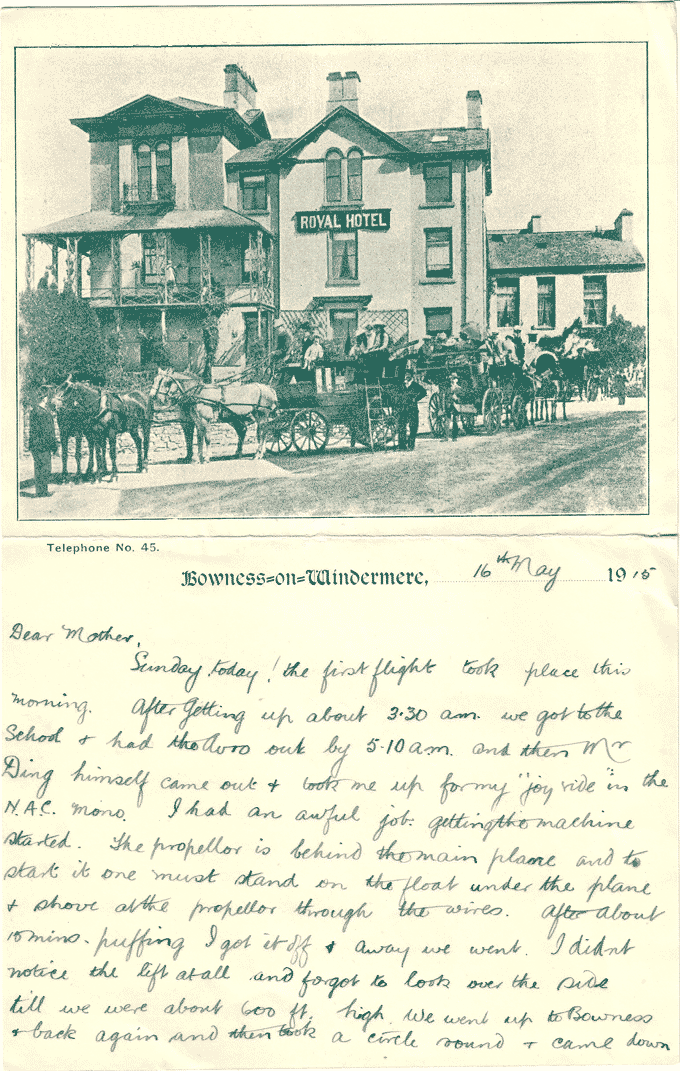 ROYAL HOTEL
Telephone No. 45.
Bowness=on=Windermere, 16th May 1915
Dear Mother,
Sunday today! the first flight took place this
morning. After getting up about 3.30 am. we got to the
School & had the Avro out by 5-10 a.m. and then Mr
Ding himself came out & took me up for my "joy ride" in the
N.A.C. mono. I had an awful job getting the machine
started. The propellor is behind the main plane and to
start it one must stand on the float under the plane
& shove at the propellor through the wires. After about
10 mins. puffing I got it off & away we went. I didn't
notice the lift at all and forgot to look over the side
till we were about 600 ft. high. We went up to Bowness
& back again and then took a circle round & came down